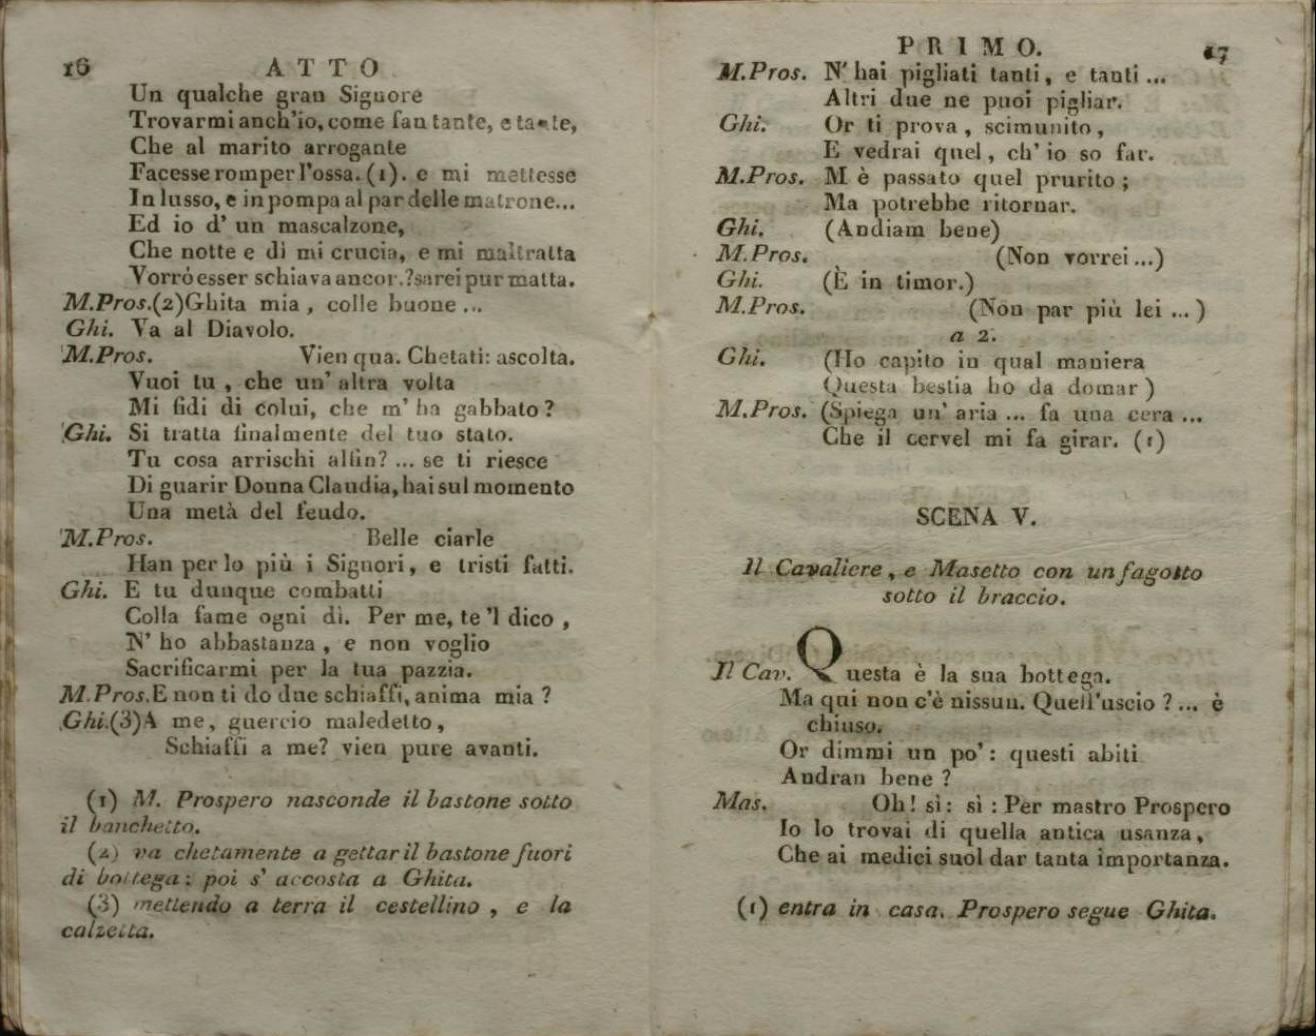 16 ATTO
Un qualche gran Signore
Trovarmi anch'io, come fan tante, e tante,
Che al marito arrogante
Facesse romper l'ossa. (1). e mi mettesse
In lusso, e in pompa al par delle matrone...
Ed io d' un mascalzone,
Che notte e dì mi crucia, e mi maltratta
Vorrò esser schiava ancor.? sarei pur matta.
M.Pros.(2)Ghita mia, colle buone ...
Ghi. Va al Diavolo.
M.Pros. Vien qua. Chetati: ascolta.
Vuoi tu, che un' altra volta
Mi fidi di colui, che m' ha gabbato?
Ghi. Si tratta finalmente del tuo stato.
Tu cosa arrischi alfin? ... se ti riesce
Di guarir Donna Claudia, hai sul momento
Una metà del feudo.
M.Pros. Belle ciarle
Han per lo più i Signori, e tristi fatti.
Ghi. E tu dunque combatti
Colla fame ogni dì. Per me, te 'l dico,
N' ho abbastanza, e non voglio
Sacrificarmi per la tua pazzia.
M.Pros.E non ti do due schiaffi, anima mia?
Ghi.(3)A me, guercio maledetto,
Schiaffi a me? vien pure avanti.
(1) M. Prospero nasconde il bastone sotto
il banchetto.
(2) va chetamente a gettar il bastone fuori
di bottega: poi s' accosta a Ghita.
(3) mettendo a terra il cestellino, e la
calzetta.
PRIMO. 17
M.Pros. N' hai pigliati tanti, e tanti ...
Altri due ne puoi pigliar.
Ghi. Or ti prova, scimunito,
E vedrai quel, ch' io so far.
M.Pros. M è passato quel prurito;
Ma potrebbe ritornar.
Ghi. (Andiam bene)
M.Pros. (Non vorrei ...)
Ghi. (È in timor.)
M.Pros. (Non par più lei ... )
a 2.
Ghi. (Ho capito in qual maniera
Questa bestia ho da domar )
M.Pros. (Spiega un' aria ... fa una cera ...
Che il cervel mi fa girar. (1)
SCENA V.
Il Cavaliere, e Masetto con un fagotto
sotto il braccio.
Il Cav. Questa è la sua bottega.
Ma qui non c'è nissun. Quell'uscio? ... è
chiuso.
Or dimmi un po': questi abiti
Andran bene?
Mas. Oh! sì: sì: Per mastro Prospero
Io lo trovai di quella antica usanza,
Che ai medici suol dar tanta importanza.
(1) entra in casa. Prospero segue Ghita.